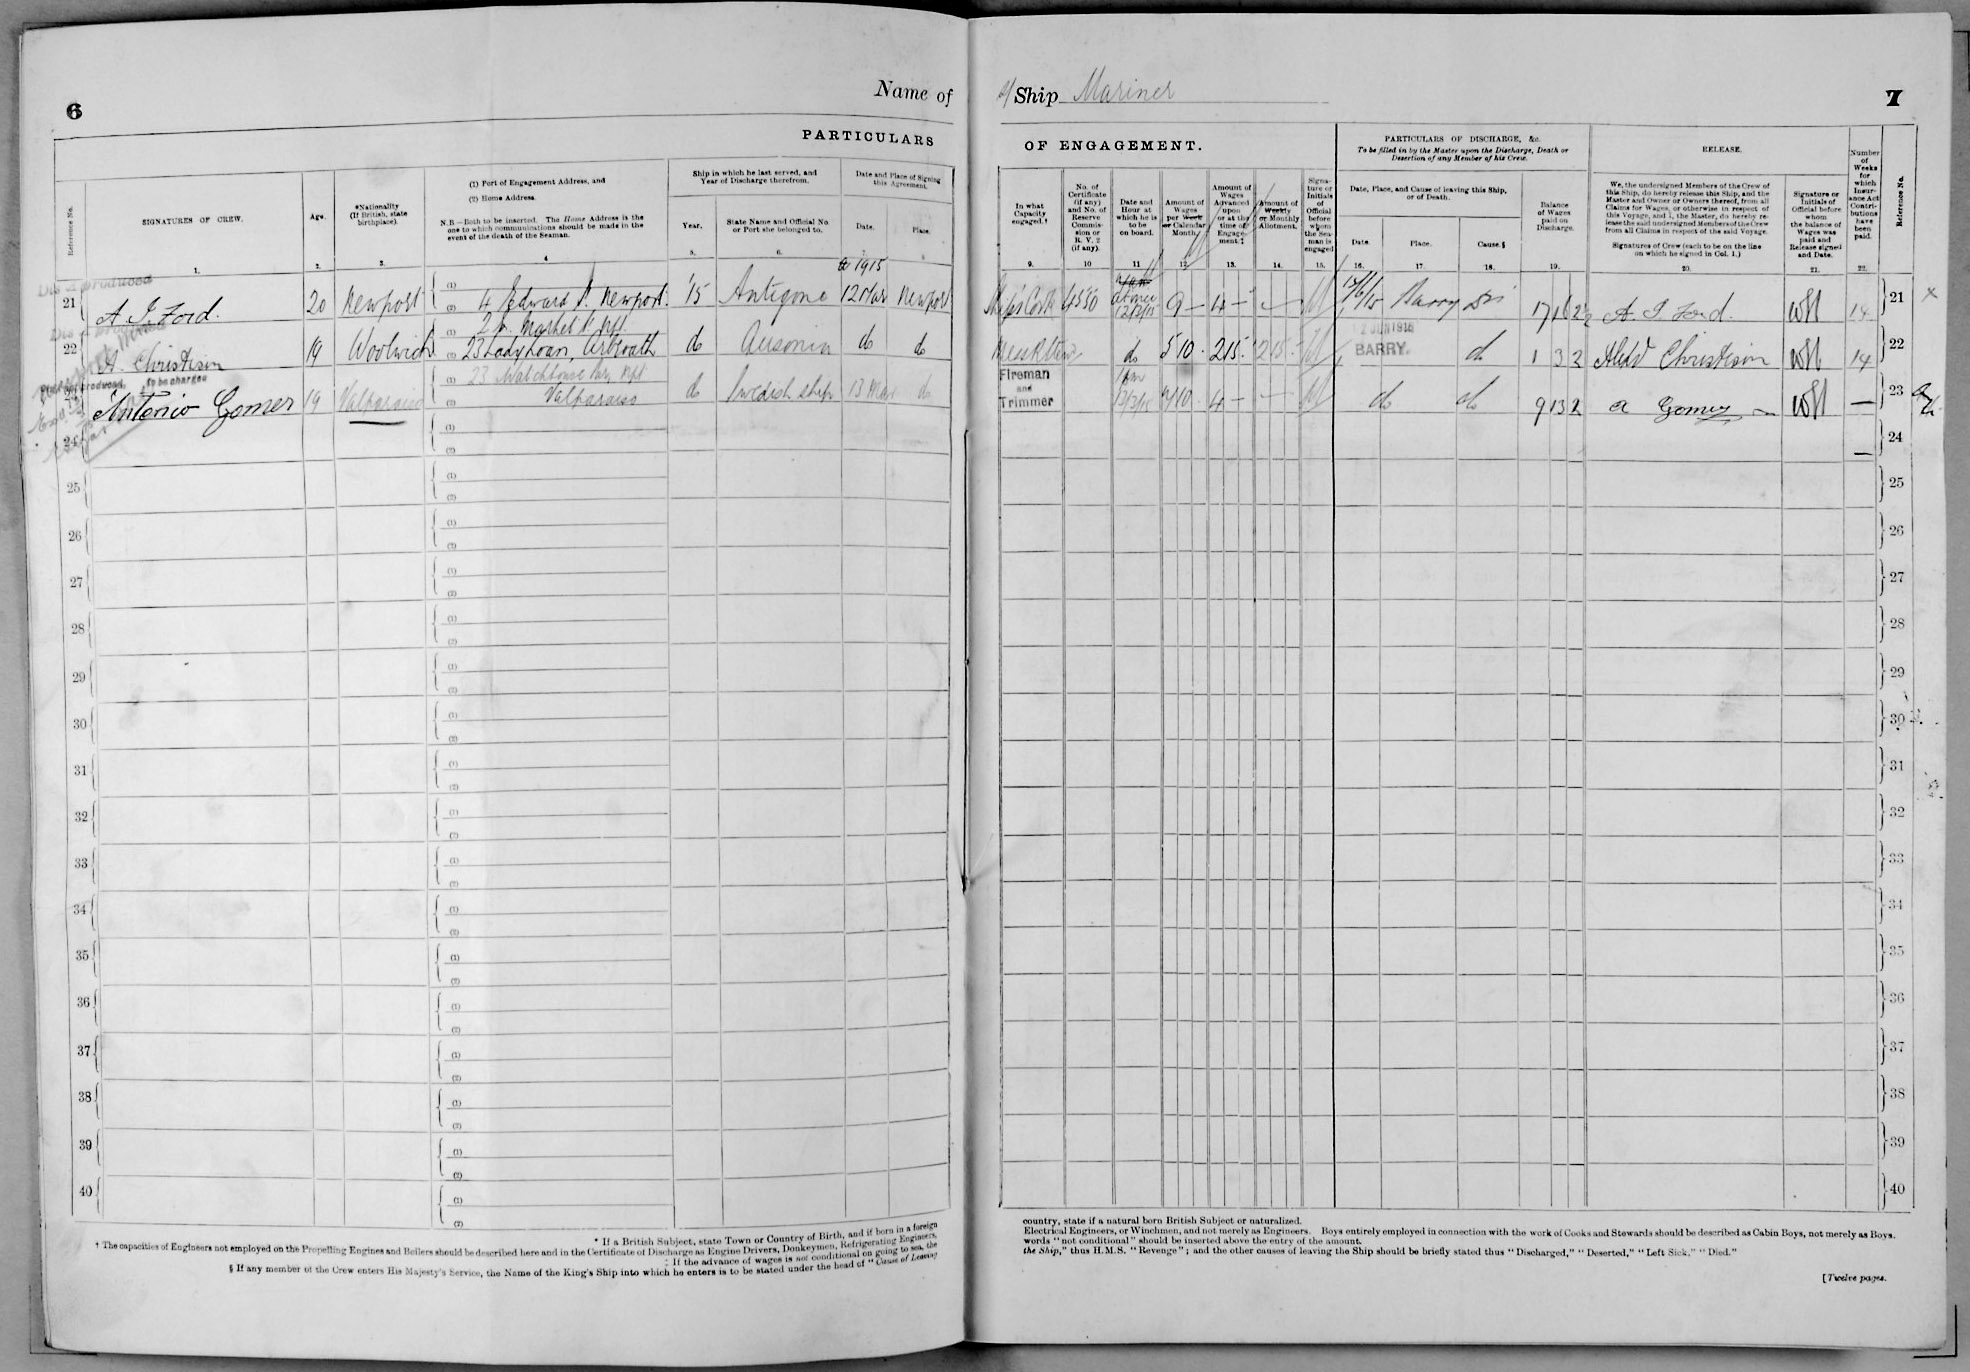 6
Name of
PARTICULARS
Reference No.
SIGNATURES OF CREW.
Age.
*Nationality
(If British, state
birthplace).
(1) Port of Engagement Address, and
(2) Home Address.
N.B.—Both to be inserted. The Home Address is the
one to which communications should be made in the
event of the death of the Seaman.
Ship in which he last served, and
Year of Discharge therefrom.
Year.
State Name and Official No.
or Port she belonged to.
Date and Place of Signing
this Agreement.
Date.
Place.
1. 2. 3. 4 5. 6.
1915
21 A. J. Ford. 20 Newport (1) 4 Edward St. Newport. '15 Antigone 12 Mar Newport
(2) Market St Npt.
22 A. Christison 19 Woolwich (2) 23 Ladyloan, Arbroath do Ausonia do do
to be charged
23 Watchhouse Npt
Antonio Gomez 19 Valparaiso (2) Valparaiso do Swedish ship 13 Mar do
24 (1)
(2)
25 (1)
(2)
26 (1)
(2)
27 (1)
(2)
28 (1)
(2)
29 (1)
(2)
30 (1)
(2)
31 (1)
(2)
32 (1)
(2)
33 (1)
(2)
34 (1)
(2)
35 (1)
(2)
36 (1)
(2)
37 (1)
(2)
38 (1)
(2)
39 (1)
(2)
40 (1)
(2)
* If a British Subject, state Town or Country of Birth, and if born in a foreign
† The capacities of Engineers not employed on the Propelling Engines and Boilers should be described here and in the Certificate of Discharge as Engine Drivers, Donkeymen, Refrigerating Engineers,
‡ If the advance of wages is not conditional on going to sea, the
§ If any member of the Crew enters His Majesty's Service, the Name of the King's Ship into which he enters is to be stated under the head of "Cause of Leaving
Ship Mariner
7
OF ENGAGEMENT.
PARTICULARS OF DISCHARGE, &c.
To be filled in by the Master upon the Discharge, Death or
Desertion of any Member of his Crew.
RELEASE.
In what
Capacity
engaged.†
No. of
Certificate
(if any)
and No. of
Reserve
Commis-
sion or
R. V. 2
(if any).
Date and
Hour at
which he is
to be
on board.
Amount of
Wages
per Week
or Calendar
Month.
Amount of
Wages
Advanced
upon
or at the
time of
Engage-
ment.‡
Amount of
Weekly
or Monthly
Allotment.
Signa-
ture or
Initials
of
Official
before
whom
the Sea-
man is
engaged
Date, Place, and Cause of leaving this Ship,
or of Death.
Date.
Place.
Cause.§
Balance
of Wages
paid on
Discharge.
We, the undersigned Members of the Crew of
this Ship, do hereby release this Ship, and the
Master and Owner or Owners thereof, from all
Claims for Wages, or otherwise in respect of
this Voyage, and I, the Master, do hereby re-
lease the said undersigned Members of the Crew
from all Claims in respect of the said Voyage.
Signatures of Crew (each to be on the line
on which he signed in Col. 1.)
Signature or
Initials of
Official before
whom
the balance of
Wages was
paid and
Release signed
and Date.
Number
of
Weeks
for
which
Insur-
ance Act
Contri-
butions
have
been
paid.
Reference No.
9. 10 11 12. 13. 14. 15. 16. 17. 18. 19. 20. 21. 22.
Ship's Cook 4550 at once 12/3/15 9 — 4 — 12/6/15 Barry Dis A. J. Ford. 14 21
do 5 10 2 15 2 15 12 JUN 1915 BARRY. do 1 3 2 Christison 14 22
Fireman
and
Trimmer 13/3/15 4 — do do 9 13 2 A Gomez — 23
24
25
26
27
28
29
30
31
32
33
34
35
36
37
38
39
40
country, state if a natural born British Subject or naturalized.
Electrical Engineers, or Winchmen, and not merely as Engineers. Boys entirely employed in connection with the work of Cooks and Stewards should be described as Cabin Boys, not merely as Boys.
words "not conditional" should be inserted above the entry of the amount.
the Ship," thus H.M.S. "Revenge"; and the other causes of leaving the Ship should be briefly stated thus "Discharged," "Deserted," "Left Sick," "Died."
[Twelve pages.